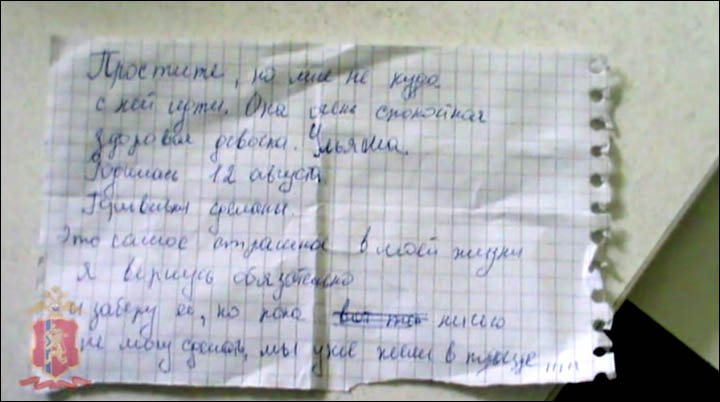 Простите, но мне не куда
с ней идти. Она спокойная
здоровая девочка. Ульяша.
Родилась 12 август
Прививки сделаны.
Это самое страшное в моей жизни
Я вернусь обязательно
и заберу её, но пока ничего
не могу сделать, мы уже жили в